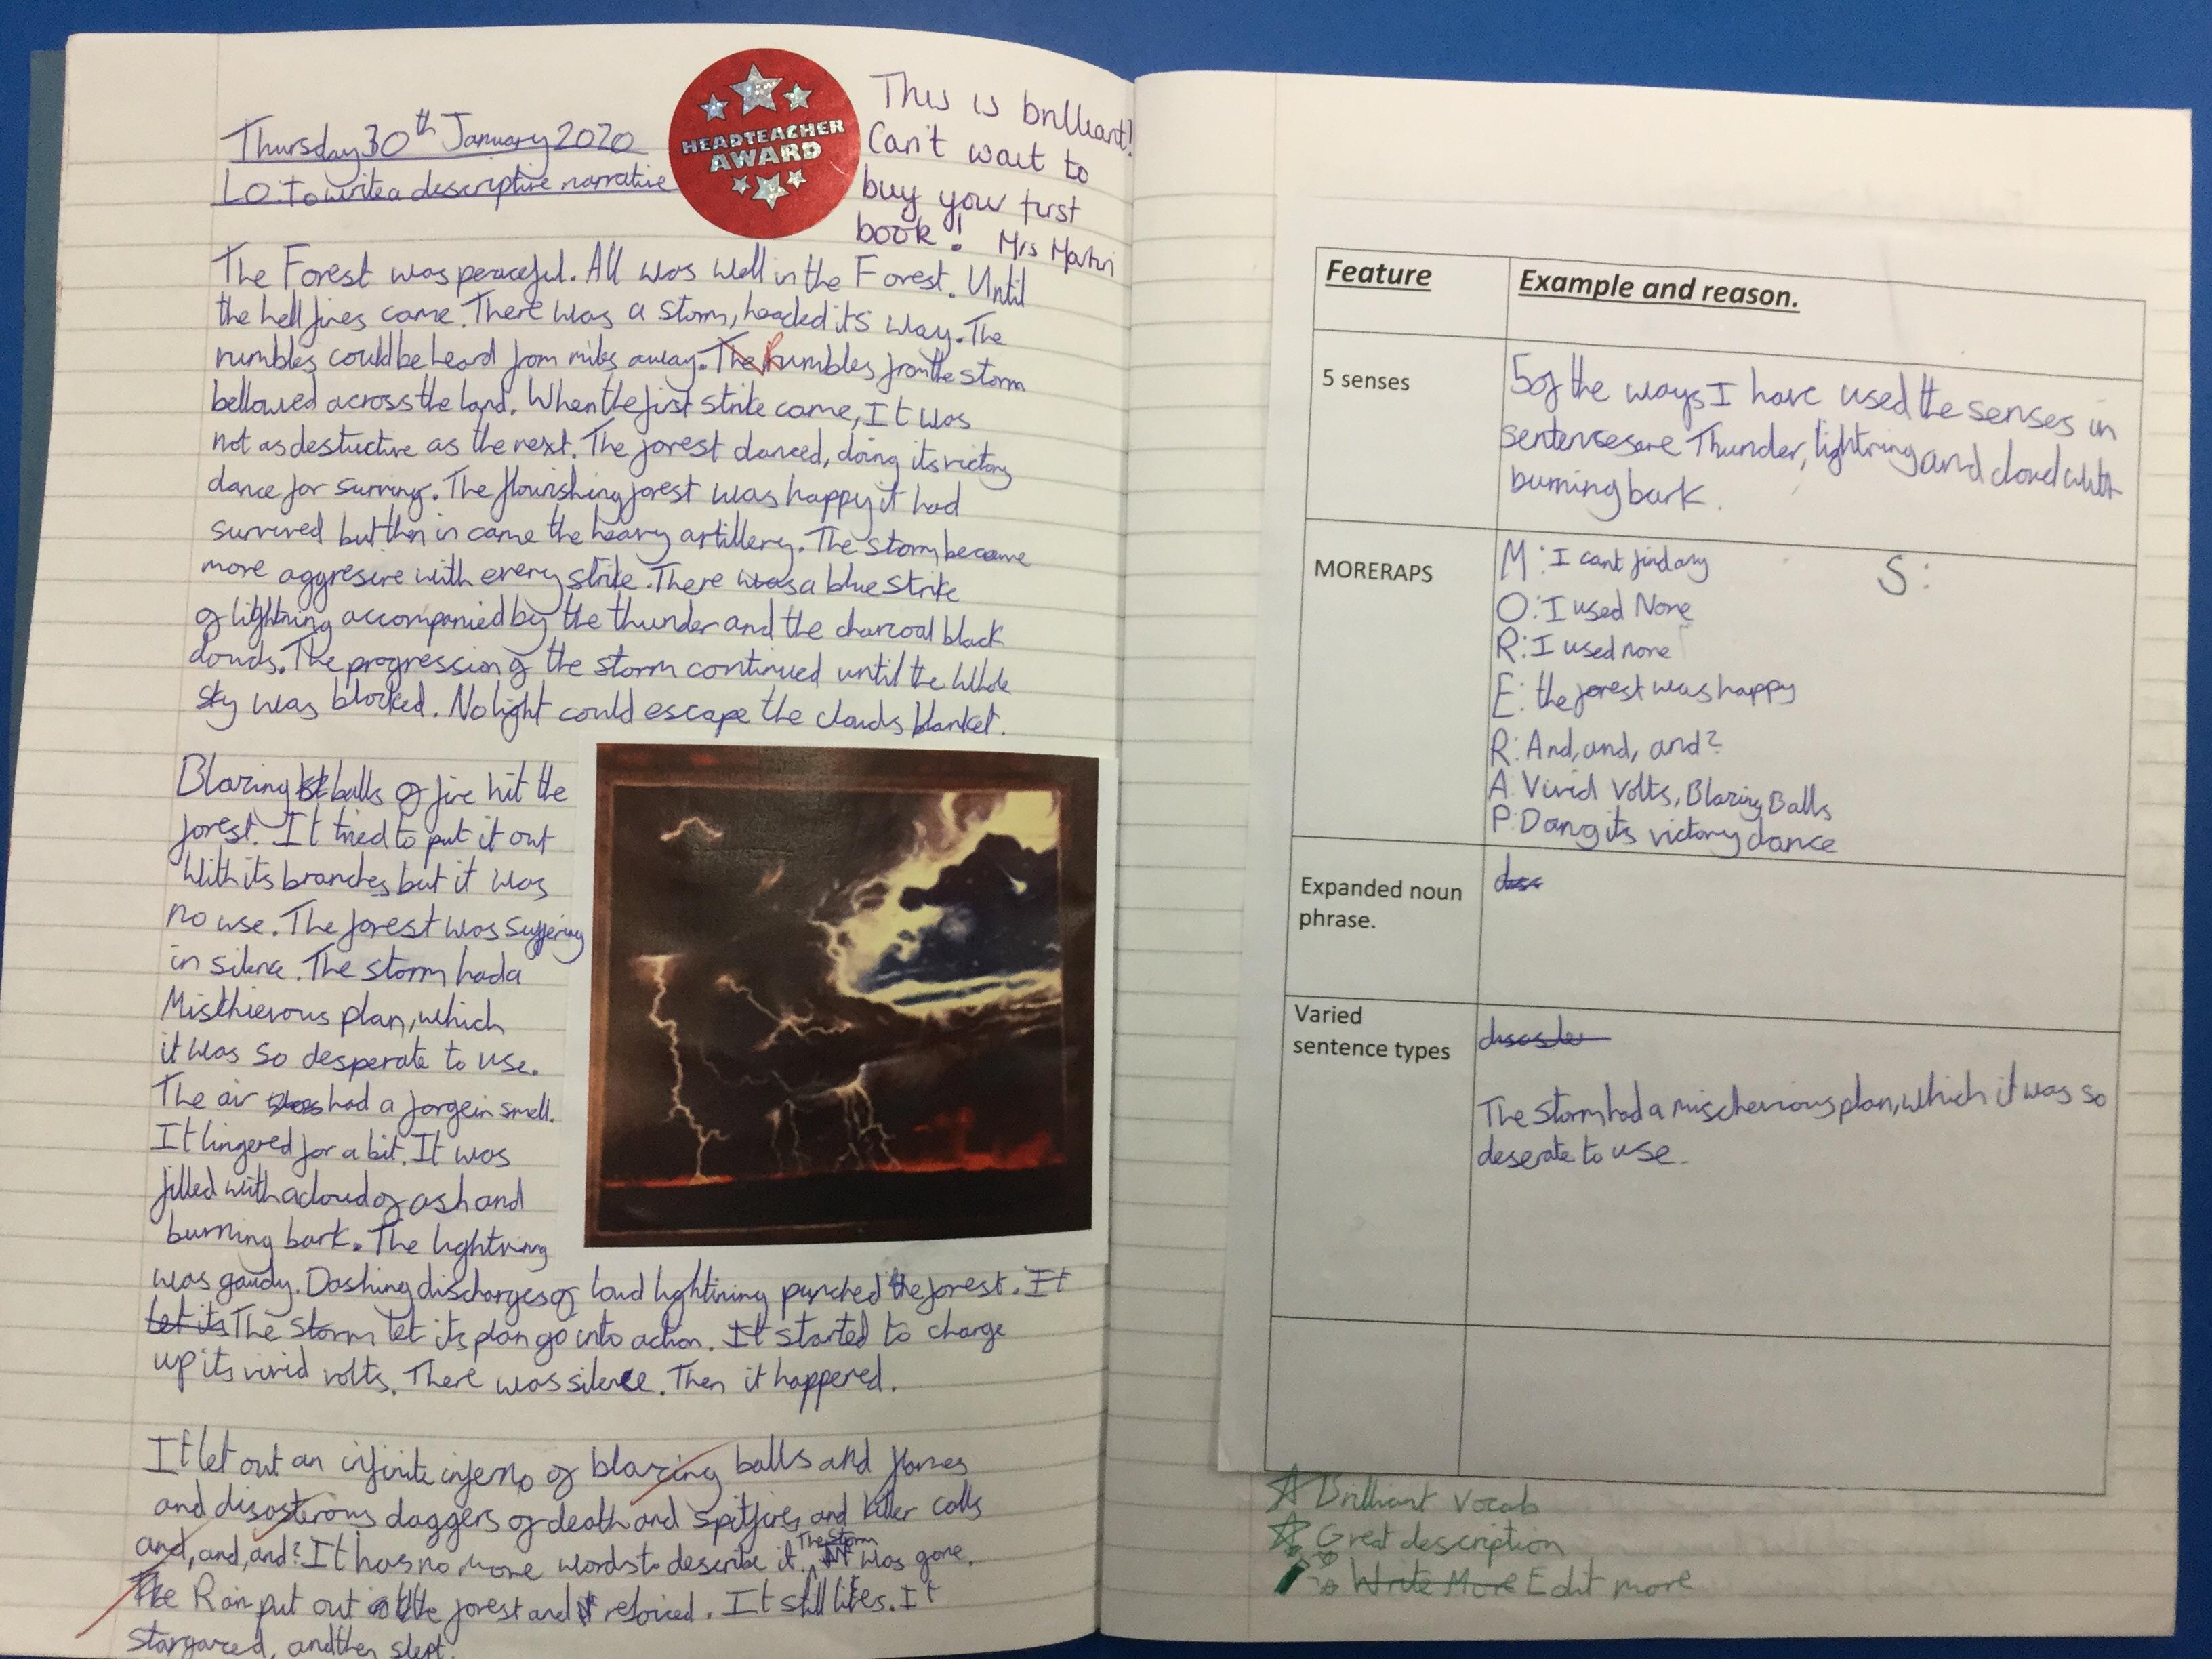 Thursday 30th January 2020
LO: To write a descriptive narrative
HEADTEACHER
AWARD
This is brilliant!
Can't wait to
buy your first
book! Mrs Martin
The Forest was peaceful. All was well in the Forest. Until
the hell fires came. There was a storm, headed its way. The
rumbles could be heard from miles away. The Rumbles from the storm
bellowed across the land. When the first strike came, It was
not as destuctive as the next. The forest danced, doing its victory
dance for surving. The flourishing forest was happy it had
survived but then in came the heavy artillery. The storm became
more aggresive with every strike. There was a blue strike
of lightning accompanied by the thunder and the charcoal black
clouds. The progression of the storm continued until the whole
sky was blocked. No light could escape the clouds blanket.
Blazing balls of fire hit the
forest. It tried to put it out
With its branches but it was
no use. The forest was suffering
in silence. The storm had a
Misthievous plan, which
it was so desperate to use.
The air had a forgein smell.
It lingered for a bit. It was
filled with a cloud of ash and
burning bark. The lightning
was gaudy. Dashing discharges of loud lightining punched the forest. It
let its The storm let its plan go into action. It started to charge
up its vivid volts. There was silence. Then it happened.
It let out an infinite inferno of blazing balls and flames
and disasterous daggers of death and spitfires and killer calls
and, and, and? It has no more words to describe it. The Storm was gone.
The Rain put out the forest and it rejoiced. It still lives. It
stargazed, and then slept.
Feature
Example and reason.
5 senses
5 of the ways I have used the senses in
sentenses are Thunder, lightning and cloud with
burning bark.
MORERAPS
M: I cant find any
S:
O: I used None
R: I used none
E: the forest was happy
R: And, and, and?
A: Vivid Volts, Blazing Balls
P: Doing its victory dance
Expanded noun
phrase.
Varied
sentence types
disaster
The storm had a mischevious plan, which it was so
deserate to use.
Brilliant vocab
Great description
Write More Edit more